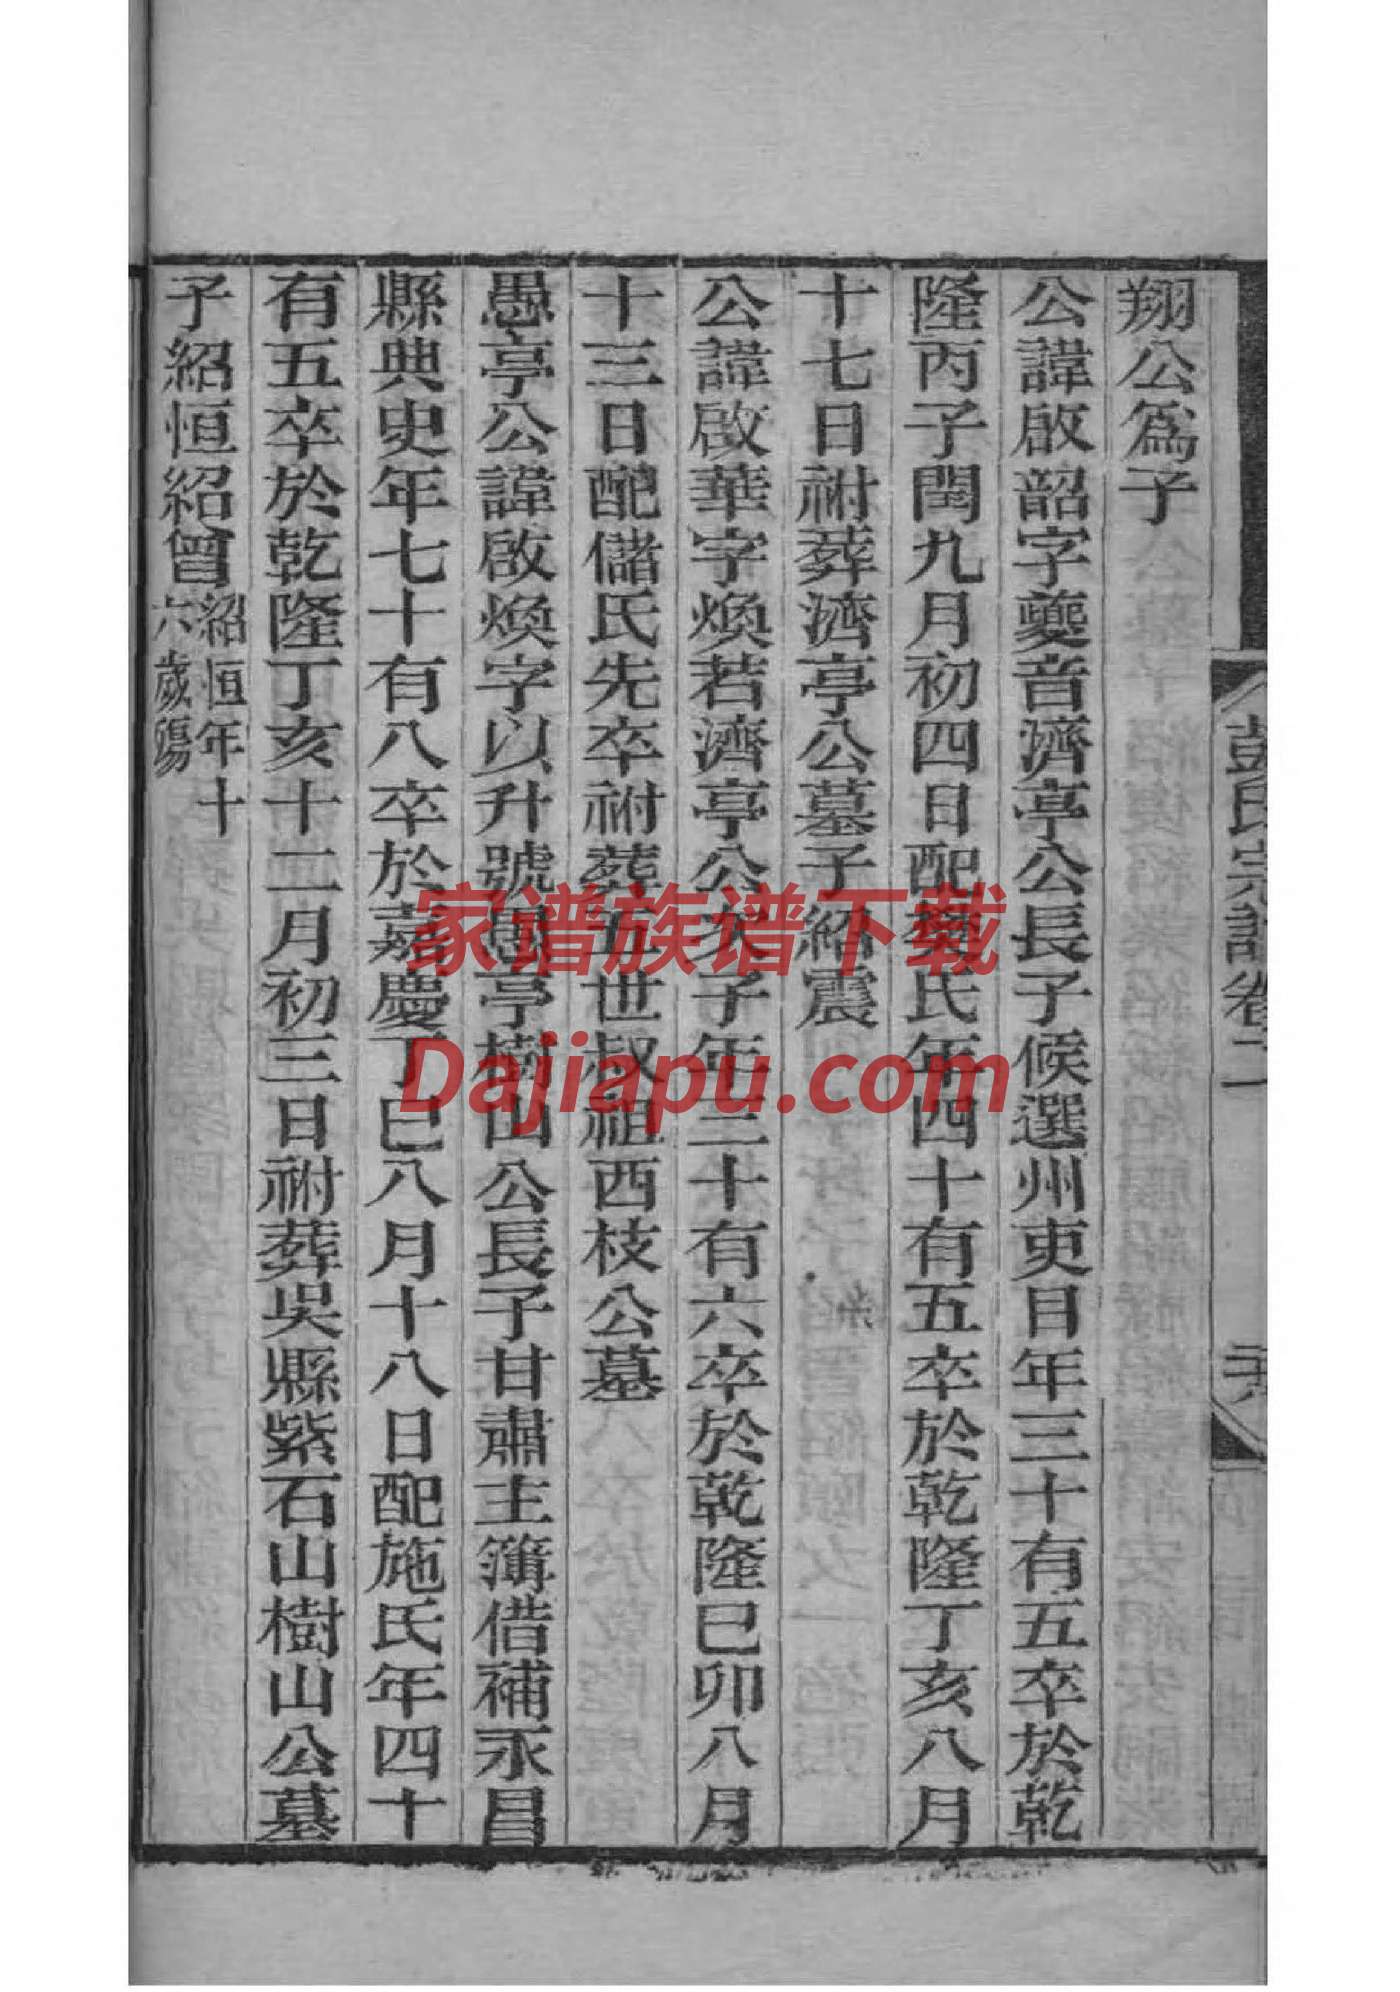 彭氏宗譜卷二
翔公爲子
公諱啟韶字夔音濟亭公長子候選州吏目年三十有五卒於乾
隆丙子閏九月初四日配蔡氏年四十有五卒於乾隆丁亥八月
十七日祔葬濟亭公墓子紹震
公諱啟華字煥若濟亭公次子年三十有六卒於乾隆已卯八月
十三日配儲氏先卒祔葬五世叔祖西枝公墓
愚亭公諱啟煥字以升號愚亭樹山公長子甘肅主簿借補永昌
縣典史年七十有八卒於嘉慶丁巳八月十八日配施氏年四十
有五卒於乾隆丁亥十二月初三日祔葬吳縣紫石山樹山公墓
子紹恒紹曾紹恒年十
六歲殤
家谱族谱下载
Dajiapu.com